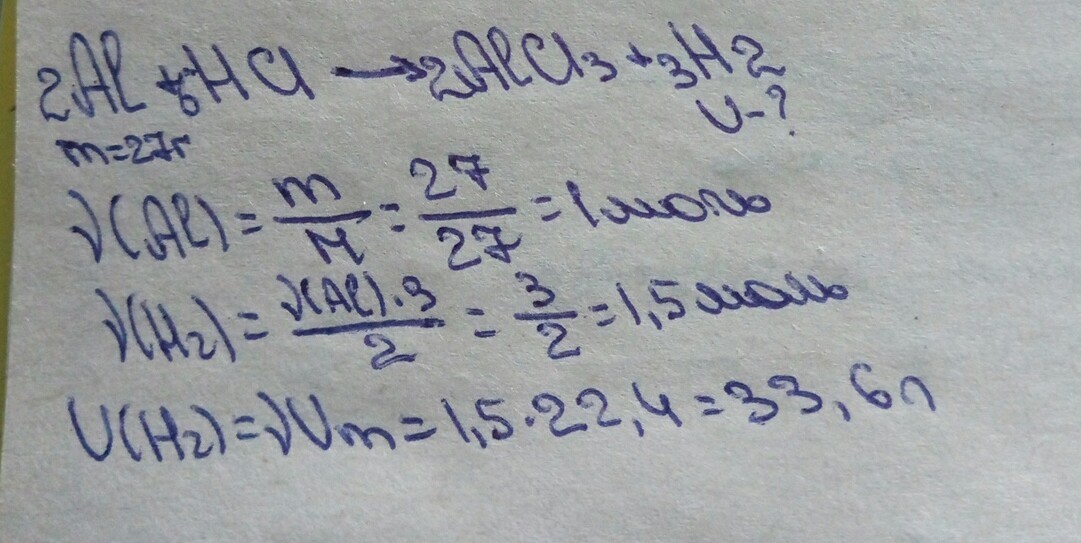 2Al + 6HCl → 2AlCl3 + 3H2
m=27г
V-?
ν(Al) = m/M = 27/27 = 1 моль
ν(H2) = ν(Al)·3/2 = 3/2 = 1,5 моль
V(H2) = νVm = 1,5·22,4 = 33,6л